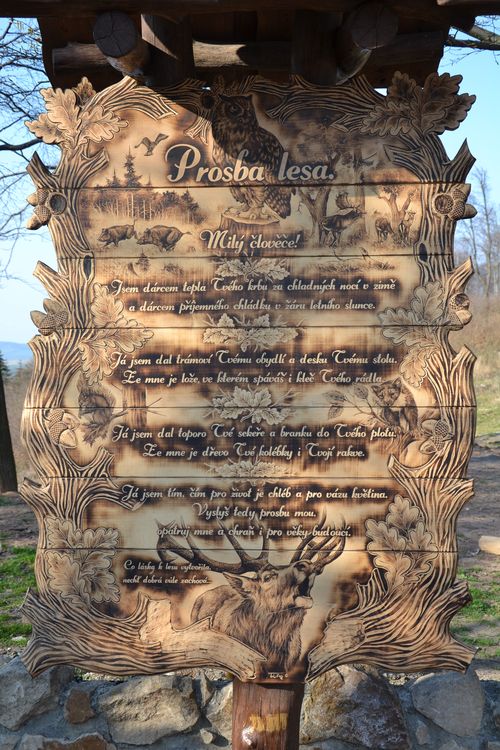 Prosba lesa.
Milý člověče!
Jsem dárcem tepla Tvého krbu za chladných nocí v zimě
a dárcem příjemného chládku v žáru letního slunce.
Já jsem dal trámoví Tvému obydlí a desku Tvému stolu.
Ze mne je lože, ve kterém spáváš i kleč Tvého rádla.
Já jsem dal toporo Tvé sekeře a branku do Tvého plotu.
Ze mne je dřevo Tvé kolébky i Tvojí rakve.
Já jsem tím, čím pro život je chléb a pro vázu květina.
Vyslyš tedy prosbu mou,
opatruj mne a chraň i pro věky budoucí.
Co láska k lesu vytvořila,
nechť dobrá vůle zachová...